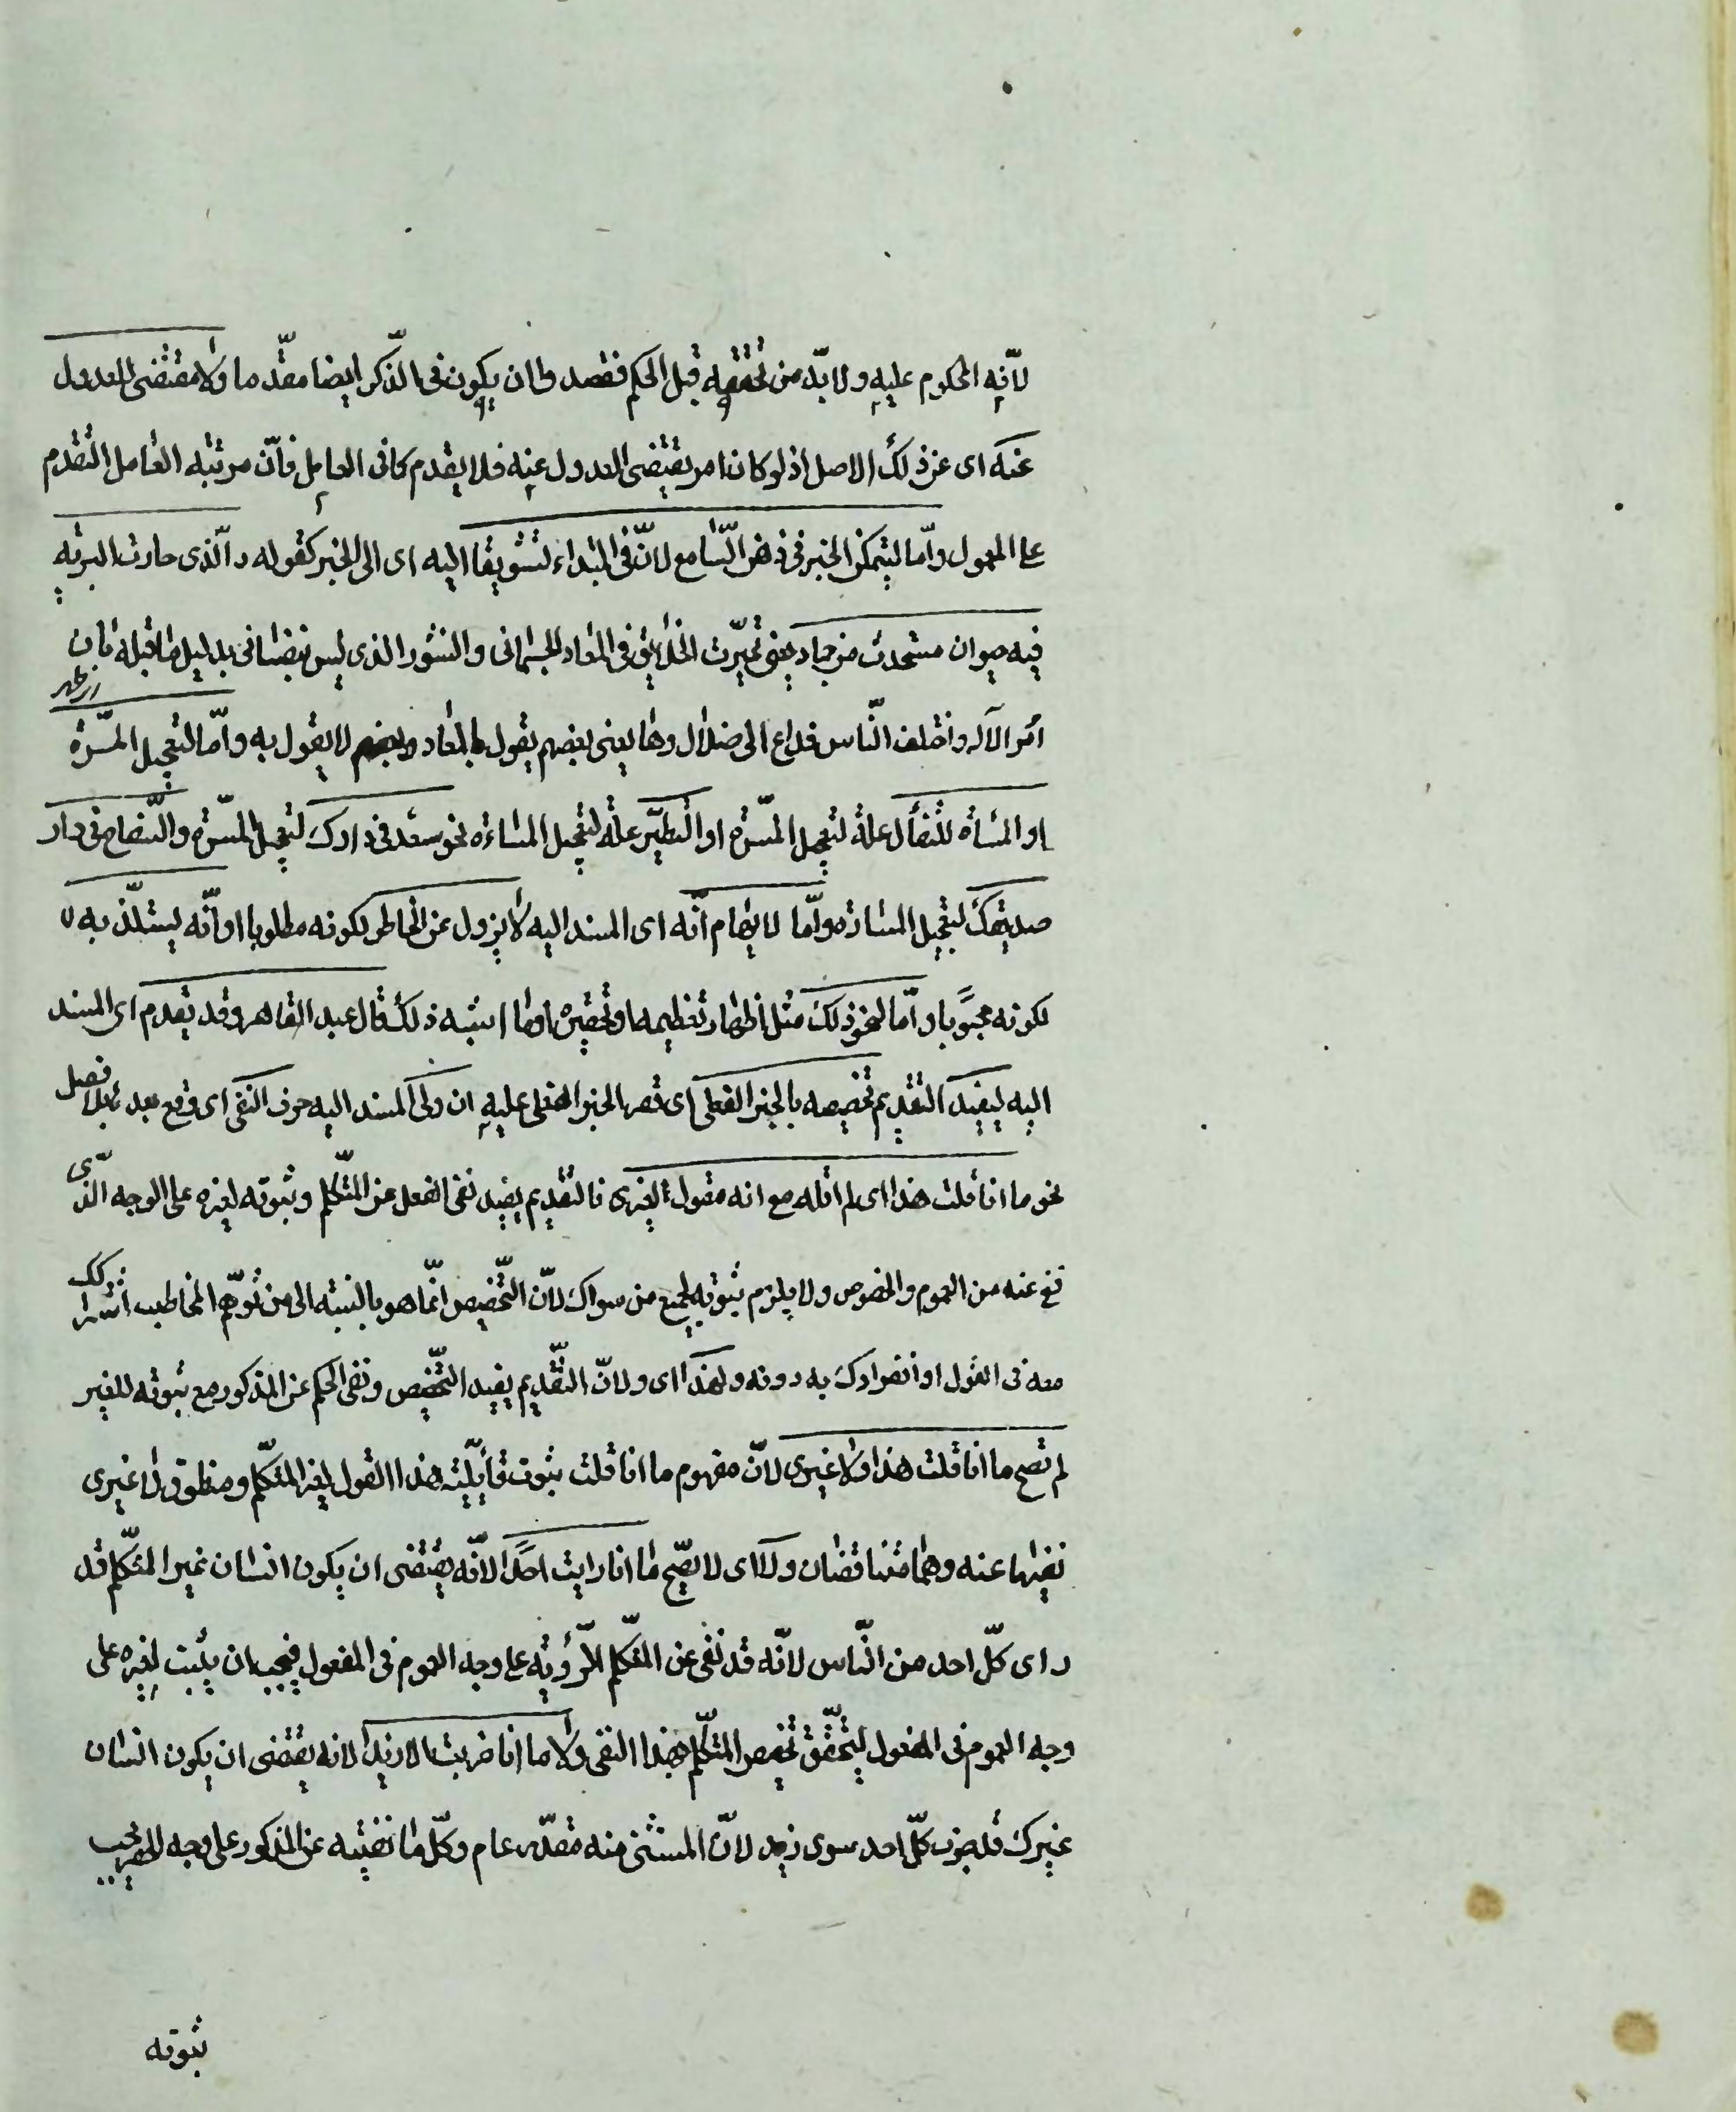 لانّه المحكوم عليه ولا بدّ من تحققه قبل الحكم فقصدوا ان يكون فى الذّكر ايضا مقدّما ولا مقتضى للعدول
عنه اى عن ذلك الاصل اذ لو كان امر يقتضى العدول عنه فلا يقدم كما فى العامل فانّ مرتبه العامل التقدم
على المعمول وامّا ليتمكن الخبر فى ذهن السّامع لانّ فى المبتداء تشويقا اليه اى الى الخبر كقوله والّذى حارت البريّه
فيه حيوان مستحدث من جماد يعنى تحيّرت الخلايق فى المعاد الجسمانى والنشور الذى ليس بنفسانى بدليل ما قبله بان
امر الاله واختلف النّاس فداع الى ضلال وهاد يعنى بعضهم يقول بالمعاد وبعضهم لا يقول به وامّا لتعجيل المسّرة
او المسأة للتفأل علة لتعجيل المسّرة او التطيّر علّه لتعجيل المساءة نحو سعد فى دارك لتعجيل المسرّه والسّفاح فى دار
صديقك لتعجيل المساءة وامّا لايهام انّه اى المسند اليه لا يزول عن الخاطر لكونه مطلوبا او انّه يستلذّ به
لكونه محبوبا وامّا لنحو ذلك مثل اظهار تعظيمه او تحقيره او ما اشبه ذلك قال عبد القاهر وقد يقدم اى المسند
اليه ليفيد التقديم تخصيصه بالخبر الفعلى اى قصر الخبر الفعلى عليه ان ولى المسند اليه حرف النفى اى وقع بعده بلا فصل
نحو ما انا قلت هذا اى لم اقله مع انه مقول لغيرى فالتقديم يفيد نفى الفعل عن المتكلّم وثبوته لغيره على الوجه الذّى
نفى عنه من العموم والخصوص ولا يلزم ثبوته لجميع من سواك لانّ التّخصيص انّما هو بالنسبته الى من توهّم المخاطب اشتراكك
معه فى القول او انفرادك به دونه ولهذا اى ولانّ التّقديم يفيد التّخصيص ونفى الحكم عن المذكور مع ثبوته للغير
لم تصح ما انا قلت هذا ولا غيرى لانّ مفهوم ما انا قلت ثبوت قايليّته هذا القول لغير المتكلّم ومنطوق ولا غيرى
نفيها عنه وهما متناقضان ولا اى لا يصّح ما انا رايت احدًا لانّه يقتضى ان يكون انسان غير المتكلّم قد
راى كلّ احد من النّاس لانّه قد نفى عن المتكلّم الرّؤية على وجه العموم فى المفعول فيجب ان يثبت لغيره على
وجه العموم فى المفعول ليتحقّق تخصيص المتكلّم بهذا النفى ولا ما انا ضربت الا زيدا لانه يقتضى ان يكون انسان
غيرك قد ضرب كلّ احد سوى زيد لانّ المستثنى منه مقدّر عام وكلّ ما نفيته عن المذكور على وجه الحصر يجب
ثبوته